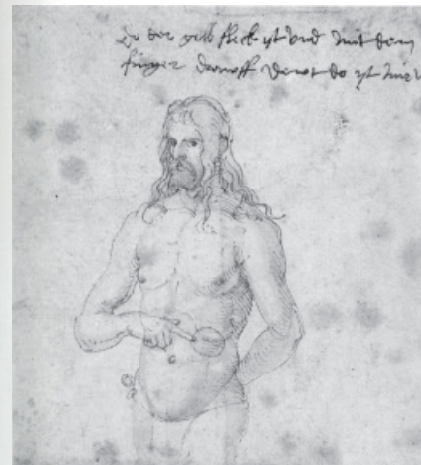 Do der gelb fleck ist und mit dem
finger drawff dewt do ist mir we